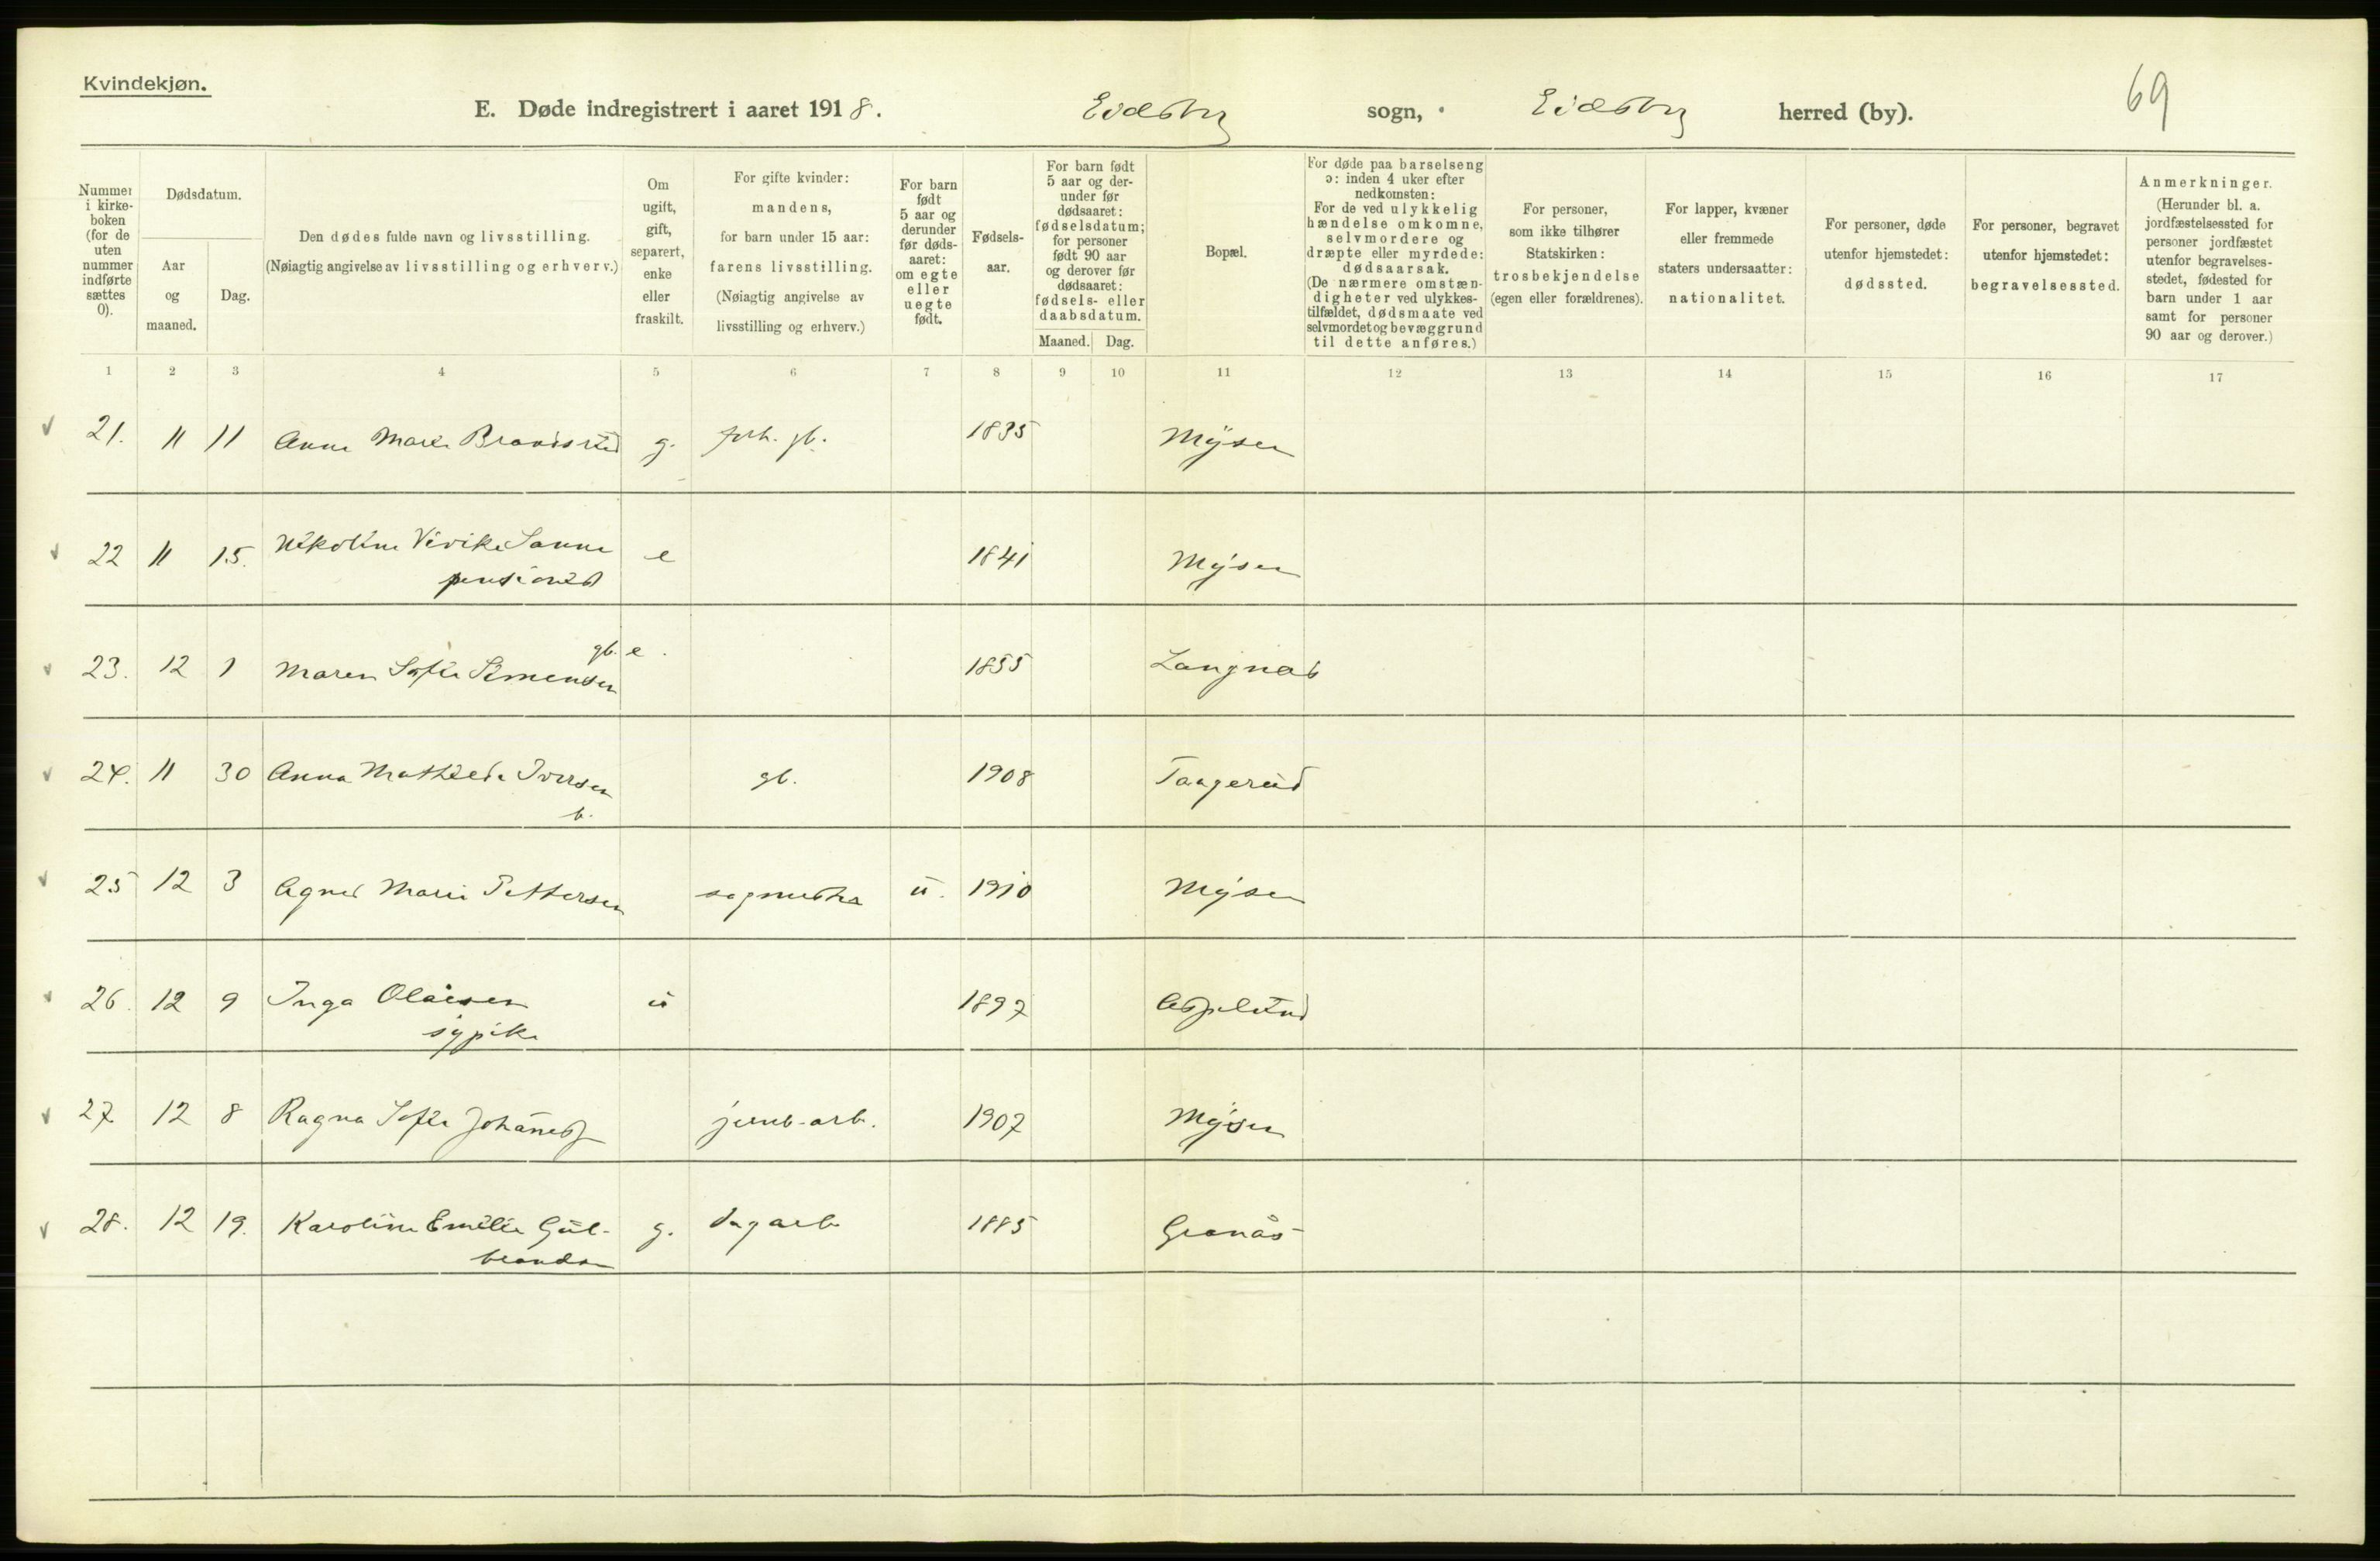 Kvindekjøn.
E. Døde indregistrert i aaret 1918. Eidsberg sogn, Eidsberg herred (by).
69
Nummer i kirkeboken (for de uten nummer indførte sættes 0).
Dødsdatum.
Aar og maaned.
Dag.
Den dødes fulde navn og livsstilling.
(Nøiagtig angivelse av livsstilling og erhverv.)
Om ugift, gift, separert, enke eller fraskilt.
For gifte kvinder: mandens, for barn under 15 aar: farens livsstilling.
(Nøiagtig angivelse av livsstilling og erhverv.)
For barn født 5 aar og derunder før dødsaaret: om egte eller uegte født.
Fødselsaar.
For barn født 5 aar og derunder før dødsaaret: fødselsdatum; for personer født 90 aar og derover før dødsaaret: fødsels- eller daabsdatum.
Maaned. Dag.
Bopæl.
For døde paa barselseng ɔ: inden 4 uker efter nedkomsten: For de ved ulykkelig hændelse omkomne, selvmordere og dræpte eller myrdede: dødsaarsak.
(De nærmere omstændigheter ved ulykkestilfældet, dødsmaate ved selvmordet og bevæggrund til dette anføres.)
For personer, som ikke tilhører Statskirken: trosbekjendelse (egen eller forældrenes).
For lapper, kvæner eller fremmede staters undersaatter: nationalitet.
For personer, døde utenfor hjemstedet: dødssted.
For personer, begravet utenfor hjemstedet: begravelsessted.
Anmerkninger.
(Herunder bl. a. jordfæstelsessted for personer jordfæstet utenfor begravelsesstedet, fødested for barn under 1 aar samt for personer 90 aar og derover.)
1 2 3 4 5 6 7 8 9 10 11 12 13 14 15 16 17
21. 11 11 Anne Marie Brandsrud g. forh. gb. 1835 Mysen
22 11 15. Nikoline Vivike Sanne e 1841 Mysen
pensionist
gb. e.
23. 12 1 Maren Sofie Simensen 1855 Langnæs
24. 11 30 Anna Mathilde Iversen gb. 1908 Taagerud
b.
25 12 3 Agnes Marie Pettersen u. 1910 Mysen
26. 12 9 Inga Olaisen u 1897 Aspelund
sypike
27 12 8 Ragna Sofie Johannes jernb-arb. 1907 Mysen
28. 12 19. Karoline Emilie Gul- g. dagarb 1885 Granås
brands